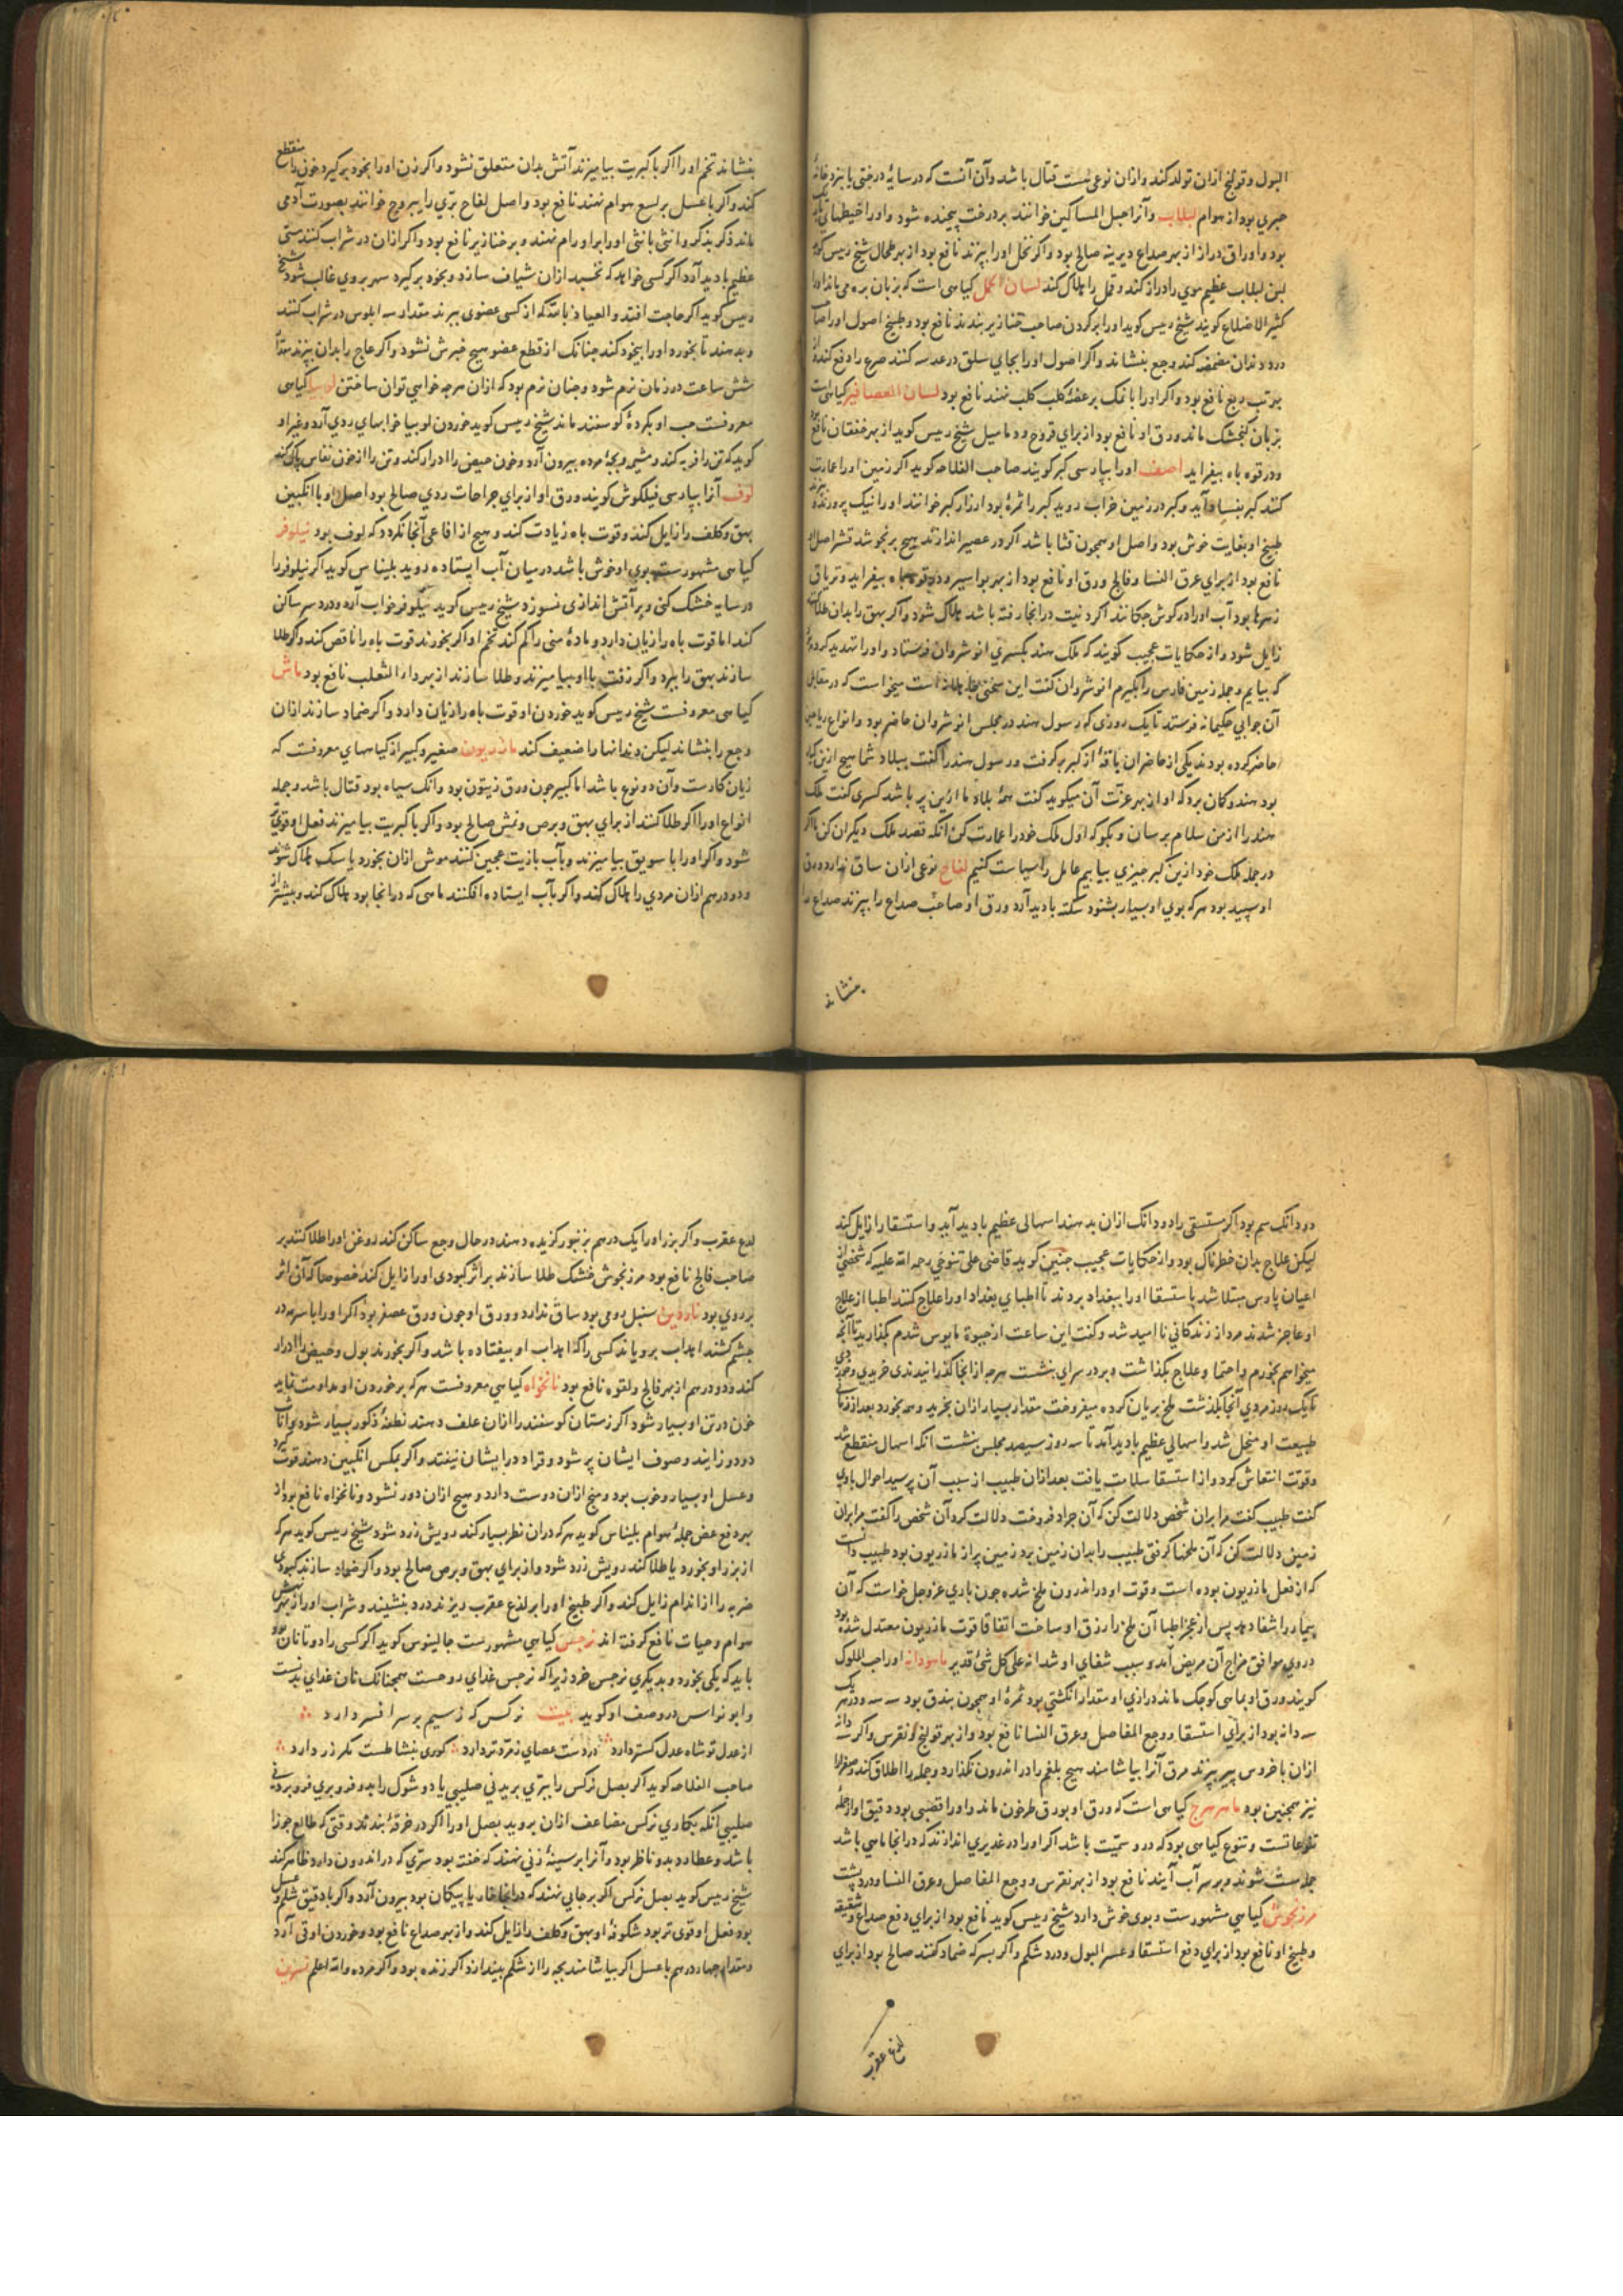 البول و قولنج ازان تولد کند و ازان نوعی هست قتال باشد و آن آنست که در سایهٔ درختی یا نزد خانهٔ
جبری بود از هوام لبلاب و آنرا حبل المساکین خوانند بر درخت پیچیده شود و او را خیطهای باریک
بود و اوراق دراز از بهر صداع دیرینه صالح بود و اگر بخل او را بپزند نافع بود از بهر طحال شیخ رییس گوید
لبن لبلاب عظیم موی را دراز کند و قمل را هلاک کند لسان الحمل کیاهی است که بزبان بره می‌ماند او را
کثیر الاضلاع کویند شیخ رییس کوید او را بر کردن صاحب خنازیر بندند نافع بود و طبیخ اصول او را صاحب
درد دندان مضمضه کند وجع بنشاند و اکر اصول او را بجای سلق در عدسه کنند صرع را دفع کند و از
بهر تب ربع نافع بود و اکر او را با نمک بر عضهٔ کلب کلب نهند نافع بود لسان العصافیر کیاهی است
بزبان کنجشک ماند ورق او نافع بود از برای قروح و دمامیل شیخ رییس کوید از بهر خفقان نافع بود
و در قوه باه بیفزاید اصف او را بپارسی کبر کویند صاحب الفلاحه کوید اکر زمین او را عمارت
کنند کبر بفساد آید و کبر در زمین خراب روید کبر را ثمرهٔ بود
طبیخ او بغایت خوش بود و اصل او همچون قثا باشد اکر در عصیر اندازند هیچ بر نجوشد قشر اصل او
نافع بود از برای عرق النسا و فالج ورق او نافع بود از بهر بواسیر و در قوه باه بیفزاید و تریاق
زهرها بود آب او را در کوش چکانند اکر دنیت در انجا رفته باشد هلاک شود و اکر بهق را بدان طلا کنند
زایل شود و از حکایات عجیب کویند که ملک هند بکسری انوشروان فرستاد و او را تهدید کرده
که بیایم و جمله زمین فارس را بکیرم انوشروان کفت این سخنی است میخواست که در مقابل
آن جوابی حکیمانه فرستد تا یک روزی که رسول هند در مجلس انوشروان حاضر بود و انواع ریاحین
حاضر کرده بودند یکی از حاضران باقهٔ از کبر بر کرفت و رسول هند را کفت ببلاد شما هیچ ازین کیاه
بود هندو کمان برد که او از بهر عزت آن میکوید کفت همهٔ بلاد ما ازین پر باشد کسری کفت ملک
هند را از من سلام برسان و بکو که اول ملک خود را عمارت کن آنکه قصد ملک دیکران کن ما اکر
در جمله ملک خود ازین کبر چیزی بیابیم عامل را سیاست کنیم لفاح نوعی ازان ساق ندارد و ورق
او سپید بود هر که بوی او بسیار بشنود سکته بادید آرد ورق او صاحب صداع را بپزند صداع را
بنشاند
بنشاند تخم او را اکر با کبریت بیامیزند آتش بدان متعلق نشود و اکر زن او را بخود برکیرد خون را منقطع
کند و اکر با عسل بر لسع هوام نهند نافع بود و اصل لفاح برّی را یبروح خوانند بصورت آدمی
ماند ذکر بذکر و انثی بانثی او را بر اورام نهند و بر خنازیر نافع بود و اکر ازان در شراب کنند مستی
عظیم بادید آرد اکر کسی خواهد که نخسبد ازان شیاف سازد و بخود برکیرد سهر بروی غالب شود شیخ
رییس کوید اکر حاجت افتد و العیاذ بالله که از کسی عضوی ببرند مقدار سه ابلوس در شراب کنند
و بدهند تا بخورد او را بیخود کند چنانک از قطع عضو هیچ خبرش نشود و اکر عاج را بدان بپزند مقدار
شش ساعت در زمان نرم شود و چنان نرم بود که ازان هرچه خواهی توان ساختن لوبیا کیاهی
معروفست حب او بکردهٔ کوسفند ماند شیخ رییس کوید خوردن لوبیا خوابهای ردی آرد و غیر او
کوید که تن را فربه کند و مشیمه و بچهٔ مرده بیرون آرد و خون حیض را ادرار کند و تن را از خون نفاس پاک کند
لوف آنرا بپارسی فیلکوش کویند ورق او از برای جراحات ردی صالح بود اصل او با انکبین
بهق و کلف را زایل کند و قوت باه زیادت کند و هیچ از افاعی آنجا نکردد که لوف بود نیلوفر
کیاهی مشهورست بوی او خوش باشد در میان آب ایستاده روید بلیناس کوید اکر نیلوفر را
در سایه خشک کنی و بر آتش اندازی نسوزد شیخ رییس کوید نیلوفر خواب آرد و درد سر ساکن
کند اما قوت باه را زیان دارد و مادهٔ منی را کم کند تخم او اکر بخورند قوت باه را ناقص کند و اکر طلا
سازند بهق را ببرد و اکر زفت با او بیامیزند و طلا سازند از بهر داء الثعلب نافع بود ماش
کیاهی معروفست شیخ رییس کوید خوردن او قوت باه را زیان دارد و اکر ضماد سازند ازان
وجع را بنشاند لیکن دندانها را ضعیف کند ماذریون صغیر و کبیر از کیاههای معروفست که
زیان کارست و آن دو نوع باشد اما کبیر چون ورق زیتون بود و انک سیاه بود قتال باشد و جمله
انواع او را اکر طلا کنند از برای بهق و برص و نمش صالح بود و اکر با کبریت بیامیزند فعل او قوی‌تر
شود و اکر او را با سویق بیامیزند و بآب بازیت عجین کنند موش ازان بخورد یا سک هلاک شوند
و دو درهم ازان مردی را هلاک کند و اکر بآب ایستاده افکنند ماهی که در انجا بود هلاک کند و بیشتر از
دو دانک سم بود اکر مستسقی را دو دانک ازان بدهند اسهالی عظیم بادید آید و استسقا را زایل کند
لیکن علاج بدان خطرناک بود و از حکایات عجیب چنین کوید قاضی علی تنوخی رحمه الله علیه که شخصی از
اعیان پارس مبتلا شد باستسقا او را ببغداد بردند تا اطبای بغداد او را علاج کنند اطبا از علاج
او عاجز شدند مرد از زندکانی ناامید شد و کفت این ساعت از حیوة مایوس شدم بکذارید تا آنچه
میخواهم بخورم و احتما و علاج بکذاشت و بر در سرای بنشست هرچه از انجا کذرانیدندی خریدی و خوردی
تا یک روز مردی آنجا بکذشت ملخ بریان کرده میفروخت مقدار بسیار ازان بخرید و همه بخورد بعد از زمانی
طبیعت او منحل شد و اسهالی عظیم بادید آمد تا سه روز سیصد مجلس بنشست آنکه اسهال منقطع شد
و قوتت انتعاش کرد و از استسقا سلامت یافت بعد ازان طبیب از سبب آن پرسید احوال باوی
کفت طبیب کفت مرا بران شخص دلالت کن که آن جراد فروخت دلالت کرد آن شخص را کفت مرا بران
زمین دلالت کن که آن ملخها کرفتی طبیب را بدان زمین برد زمین پر از ماذریون بود طبیب دانست
که از فعل ماذریون بوده است و قوت او در اندرون ملخ شده چون باری عزوجل خواست که آن
بیمار را شفا دهد پس از عجز اطبا آن ملخ را رزق او ساخت اتفاقا قوت ماذریون معتدل شده بود
در وی موافق مزاج آن مریض آمد و سبب شفای او شد انه علی کل شیء قدیر ماهودانه او را حب الملوک
کویند ورق او بماهی کوچک ماند درازی او مقدار انکشتی بود ثمرهٔ او همچون بندق بود سه سه و در هر یک
سه دانه بود از برای استسقا و وجع المفاصل و عرق النسا نافع بود و از بهر قولنج و نقرس و اکر سه دانه
ازان با خروس پیر بپزند مرق آنرا بیاشامند هیچ بلغم را در اندرون نکذارد و جمله را اطلاق کند و صفرا را
نیز همچنین بود ماهیزهرج کیاهی است که ورق او بورق طرخون ماند و او را قضبی بود دقیق او از جمله
یتوعاتست و یتوع کیاهی بود که در و سمّیت باشد اکر او را در غدیری اندازند که در انجا ماهی باشد
جمله مست شوند و بر سر آب آیند نافع بود از بهر نقرس و وجع المفاصل و عرق النسا و درد پشت
مرزنجوش کیاهی مشهورست و بوی خوش دارد شیخ رییس کوید نافع بود از برای دفع صداع و شقیقه
و طبیخ او نافع بود از برای دفع استسقا و عسر البول و درد شکم و اکر بسرکه ضماد کنند صالح بود از برای
لدغ عقرب
لدغ عقرب و اکر بزر او را یک درهم بزنبور کزیده دهند در حال وجع ساکن کند روغن او را طلا کنند بر
صاحب فالج نافع بود مرزنجوش خشک طلا سازند بر اثر کبودی او را زایل کند خصوصا که آن اثر
بر روی بود ناردین سنبل رومی بود ساق ندارد و ورق او چون ورق عصفر بود اکر او را با سرمه در
چشم کشند اهداب برویاند کسی را که اهداب او بیفتاده باشد و اکر بخورند بول و حیض را ادرار
کند و دو درهم از بهر فالج و لقوه نافع بود نانخواه کیاهی معروفست هر که بر خوردن او مداومت نماید
خون در تن او بسیار شود اکر زستان کوسفند را ازان علف دهند نطفهٔ ذکور بسیار شود و اناث
دو دو زایند و صوف ایشان پر شود و قراد در ایشان نیفتد و اکر بمکس انکبین دهند قوت کیرد
و عسل او بسیار و خوب بود و منج ازان دوست دارد و هیچ ازان دور نشود و نانخواه نافع بود از
بهر دفع عض جملهٔ هوام بلیناس کوید هر که دران نظر بسیار کند رویش زرد شود شیخ رییس کوید هر که
از بزر او بخورد یا طلا کند رویش زرد شود و از برای بهق و برص صالح بود و اکر ضماد سازند کبودی
ضربه را از اندام زایل کند و اکر طبیخ او را بر لدغ عقرب ریزند درد بنشیند و شراب او را از بهر نهش
هوام و حیات نافع کرفته اند نرجس کیاهی مشهورست جالینوس کوید اکر کسی را دو تا نان بود
باید که یکی بخورد و بدیکری نرجس خرد زیرا که نرجس غذای روحست همچنانک نان غذای بدنست
و ابونواس در وصف او کوید بیت نرکس که ز سیم بر سر افسر دارد
از عدل تو شاه عدل کستر دارد در دست عصای زمرد تر دارد کوری بنشاطست مکر زر دارد
صاحب الفلاحه کوید اکر بصل نرکس را ببری بریدنی صلیبی یا دو شوک را بدو فرو بری فرو بردنی
صلیبی آنکه بکاری نرکس مضاعف ازان بروید بصل او را اکر در خرقهٔ بندند وقتی که طالع جوزا
باشد و عطارد بدو ناظر بود و آنرا بر سینهٔ زنی نهند که خفته بود سرّی که در اندرون دارد ظاهر کند
شیخ رییس کوید بصل نرکس اکر بر جایی نهند که در انجا خار یا پیکان بود بیرون آرد و اکر با دقیق شلم و عسل
بود فعل او قوی تر بود شکوفهٔ او بهق و کلف را زایل کند و از بهر صداع نافع بود و خوردن او قی آرد
و مقدار چهار درهم با عسل اکر بیاشامند بچه را از شکم بیندازد اکر زنده بود و اکر مرده والله اعلم نسرین